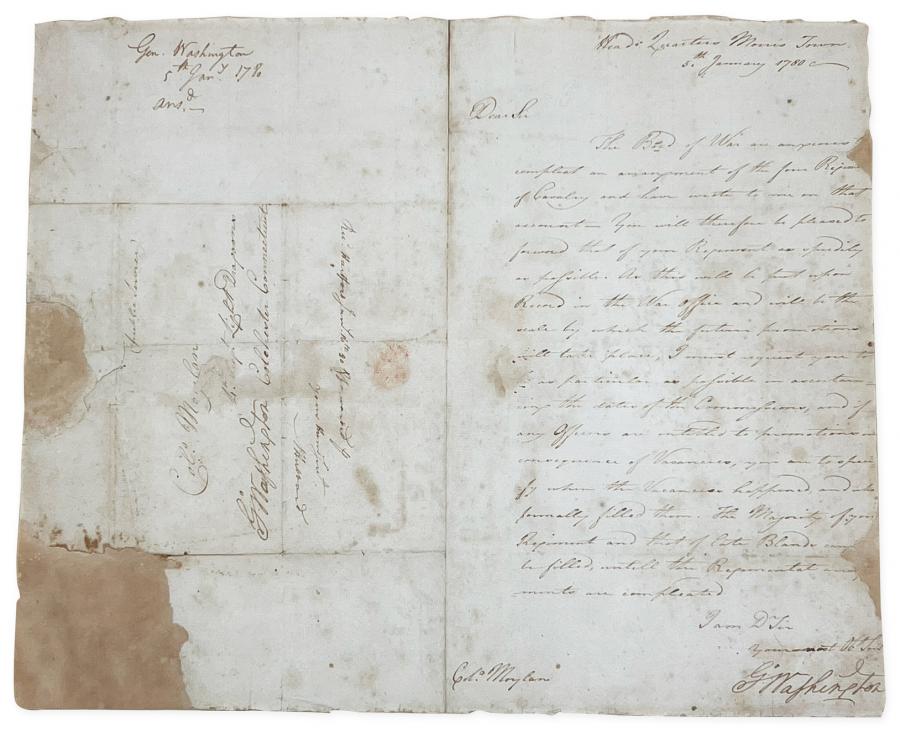 Gen. Washington
5th Jany. 1780
ansd.
public service
Colo. Moylan
Light Dragoons
Colchester Connecticut
Go Washington
Head Quarters Morris Town
5th January 1780
Dear Sir
The Bord of War are anxious t
compleat an arrangement of the four Regim
of Cavalry and have wrote to me on that
account — You will therefore be pleased to
forward that of your Regiment as speedily
as possible. As this will be kept upon
Record in the War Office and will be the
scale by which the future promotions
will take place, I must request you to
as particular as possible in ascertain
ing the dates of the Commissions, and if
any Officers are intitled to promotions in
consequence of Vacancies, you are to speci
fy when the Vacancies happened, and who
formally filled them. The Majority of your
Regiment and that of Late Blands
be filled, untill the Regimental
ments are compleated
I am Dr Sir
Your most Obt Serv
Go Washington
Colo. Moylan